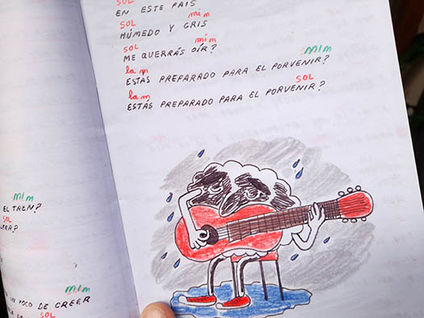 SOL
EN ESTE PAIS
SOL mim
HÚMEDO Y GRIS
SOL mim
ME QUERRÁS OÍR?
la m MIM
ESTÁS PREPARADO PARA EL PORVENIR?
la m SOL
ESTÁS PREPARADO PARA EL PORVENIR?
MIM
EL TREN?
SOL
MIM
POCO DE CREER
SOL